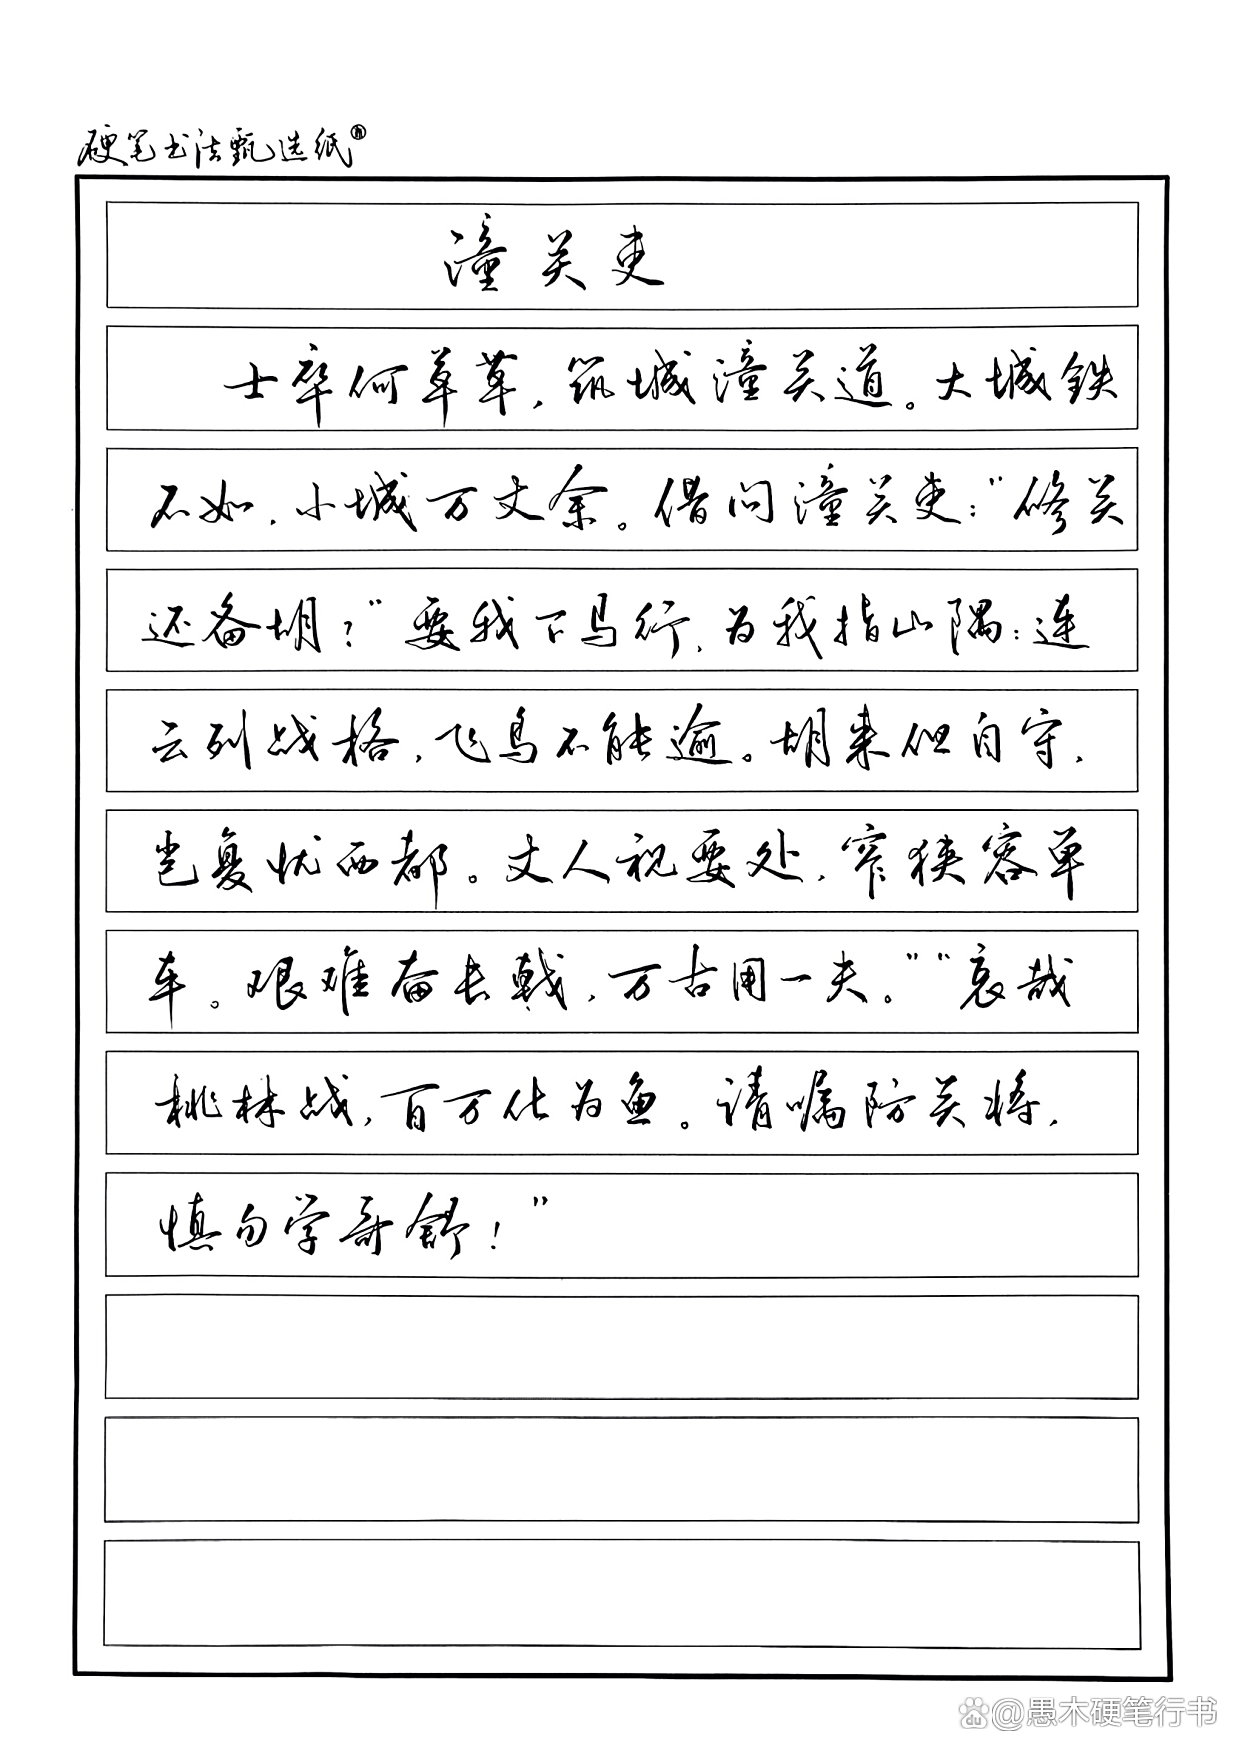 硬笔书法甄选纸®
潼关吏
士卒何草草，筑城潼关道。大城铁
不如，小城万丈余。借问潼关吏：“修关
还备胡？”要我下马行，为我指山隅：连
云列战格，飞鸟不能逾。胡来但自守，
岂复忧西都。丈人视要处，窄狭容单
车。艰难奋长戟，万古用一夫。”“哀哉
桃林战，百万化为鱼。请嘱防关将，
慎勿学哥舒！”
@愚木硬笔行书